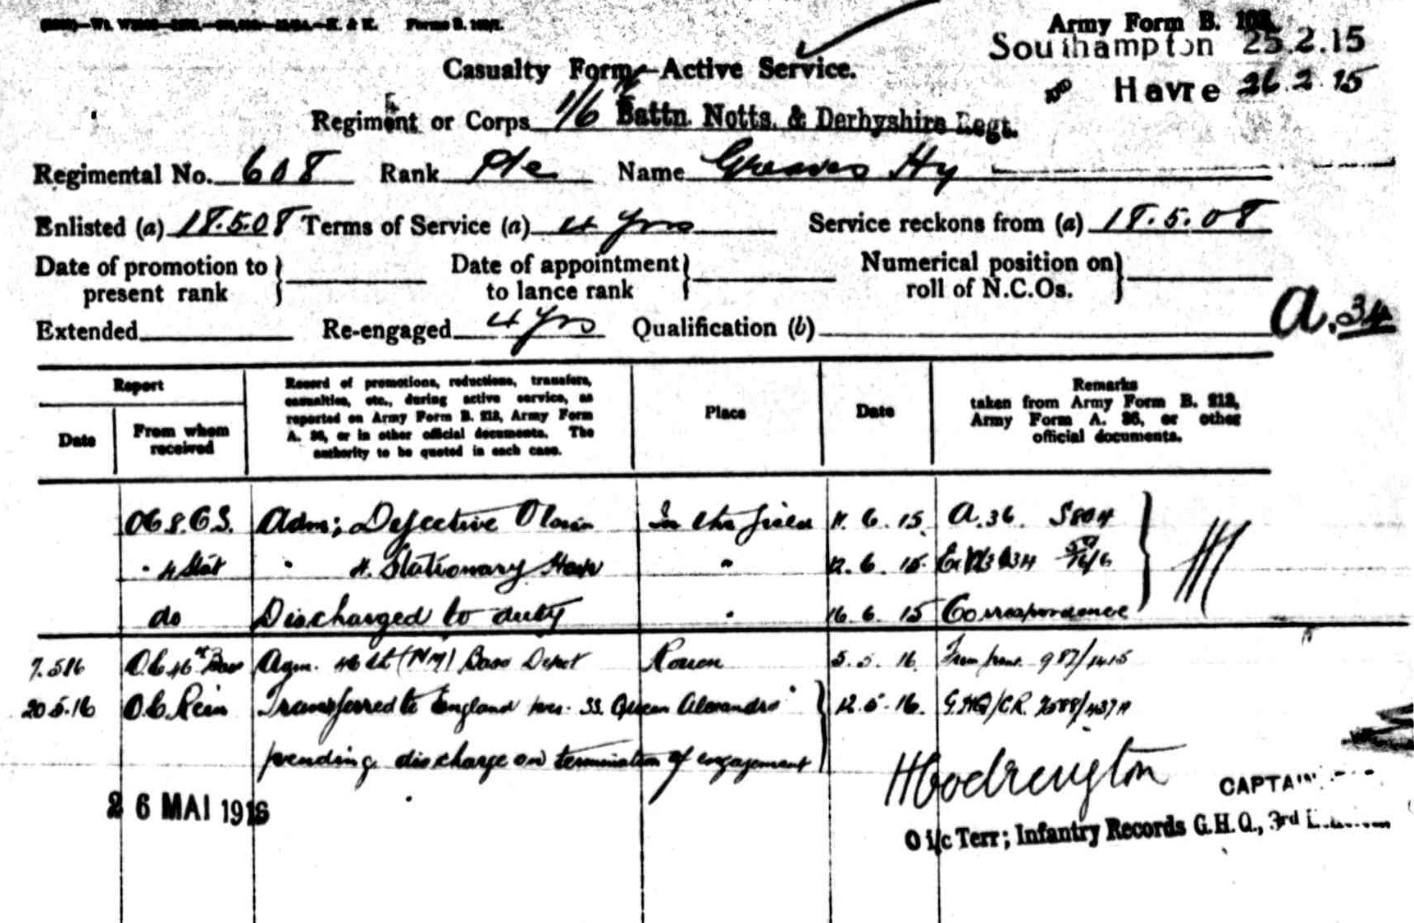 Forms B. 103/1.
Army Form B. 103.
Southampton 25.2.15
Havre 26.2.15
Casualty Form—Active Service.
Regiment or Corps 1/6 Battn. Notts. & Derbyshire Regt.
Regimental No. 608 Rank Pte Name Greaves Hy
Enlisted (a) 18.5.08 Terms of Service (a) 4 Yrs Service reckons from (a) 18.5.08
Date of promotion to present rank } Date of appointment to lance rank } Numerical position on roll of N.C.Os. }
Extended Re-engaged 4 yrs Qualification (b)
A.34
Report
Date
From whom received
Record of promotions, reductions, transfers,
casualties, etc., during active service, as
reported on Army Form B. 213, Army Form
A. 36, or in other official documents. The
authority to be quoted in each case.
Place
Date
Remarks
taken from Army Form B. 213,
Army Form A. 36, or other
official documents.
Adm; Defective In the field 11. 6. 15 A.36.
4 Stat " 4. Stationary Hosp " 12. 6. 15
do Discharged to duty " 16. 6. 15 Correspondence
7.5.16 Base Depot Rouen 5. 5. 16
20.5.16 O.C. Rein Transferred to England per. SS. Queen Alexandra 12.5.16.
pending discharge on termination of engagement
26 MAI 1916
CAPTAIN
O i/c Terr; Infantry Records G.H.Q., 3rd